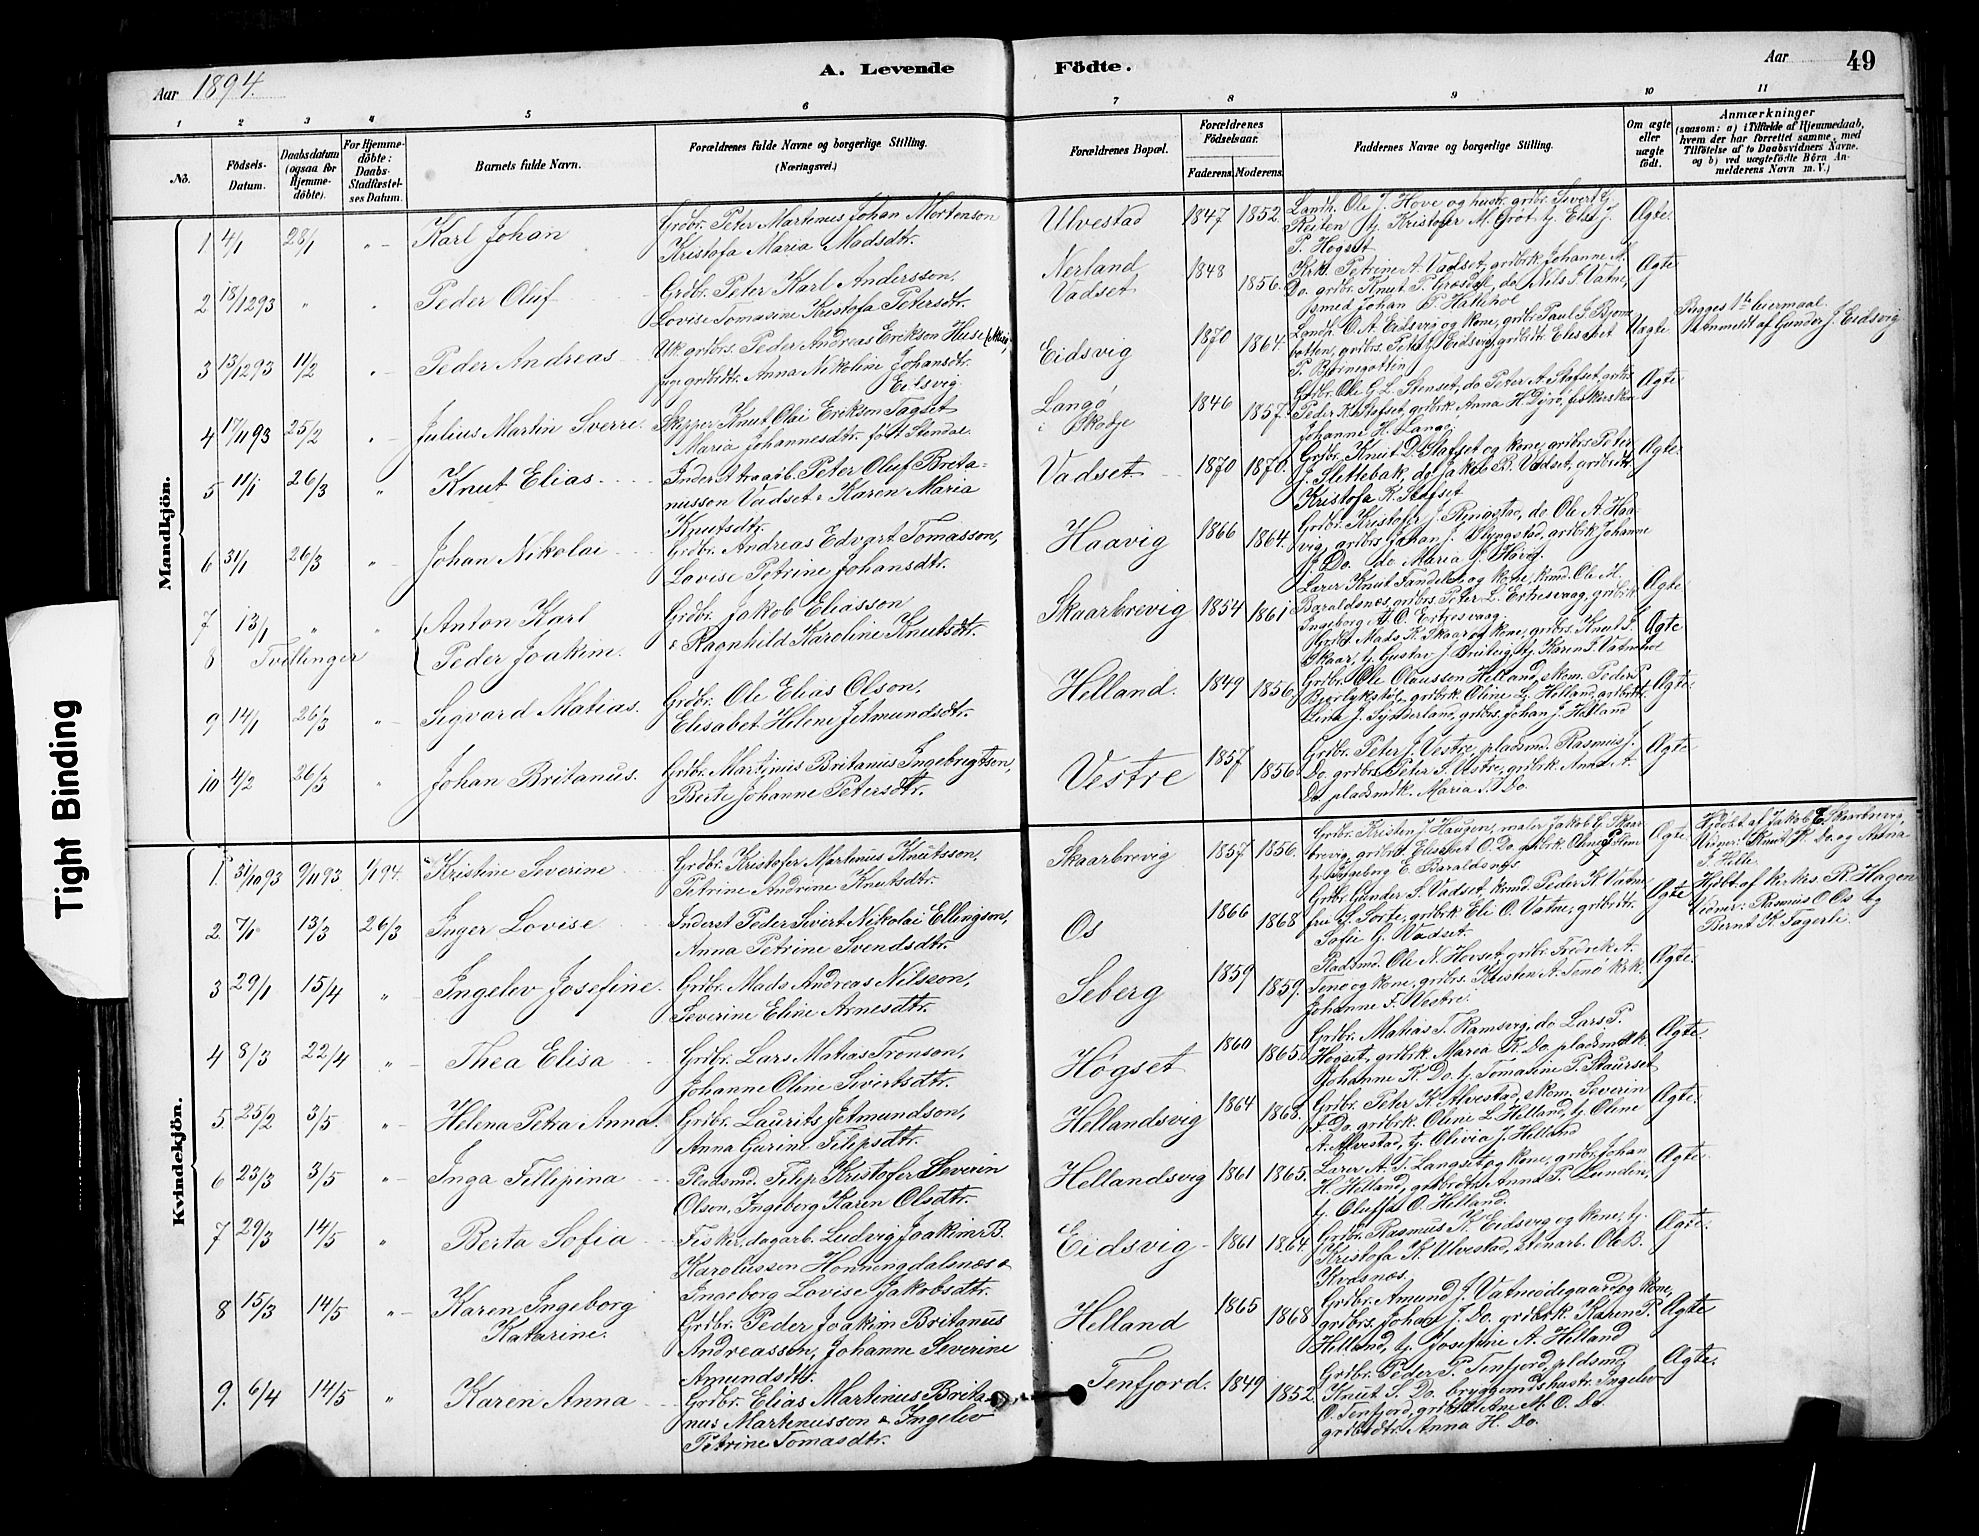 Tight Binding
Aar 1894.
A. Levende
Födte.
Aar
49
1 2 3 4 5 6 7 8 9 10 11
No.
Födsels-Datum.
Daabsdatum (ogsaa for Hjemme-döbte).
For Hjemme-döbte: Daabs-Stadfæstel-ses Datum.
Barnets fulde Navn.
Forældrenes fulde Navne og borgerlige Stilling.
(Næringsvei.)
Forældrenes Bopæl.
Forældrenes Födselsaar.
Faderens. Moderens.
Faddernes Navne og borgerlige Stilling.
Om ægte eller uægte födt.
Anmærkninger
(saasom: a) i Tilfælde af Hjemmedaab, hvem der har forrettet samme, med Tilföielse af to Daabsvidners Navne. og b) ved uægtefödte Börn An-melderens Navn m. V.)
Mandkjön.
1 4/1 28/1 " Karl Johan
Grdbr. Peter Martinus Johan Mortenson
Kristofa Maria Madsdtr.
Ulvestad 1847 1852.
Landh. Ole J. Hove og hustr. grdbr. Sivert G.
Reiten tj. Kristofer M. Grøt tj. Else J.
P. Høgset
Ægte.
2 18/12 93 " " Peder Oluf
Grdbr. Peter Karl Andersson,
Lovise Tomasine Kristofa Petersdtr.
Nerland
Vadset
1848 1856.
Krk. Petrine A. Vadset, grdbrk. Johanne A.
Do. grdbr. Knut P. do Nels J. Vatne,
smed Johan P. Hatlehol
Ægte
3 13/12 93 11/2 " Peder Andreas
Uk. grdbrs. Peder Andreas Erikson Huse
grdbrdtr. Anna Nikoline Johansdtr.
Eidsvig
Eidsvig 1870 1864.
Landh. O. A. Eidsvig og kone, grdbr. Paul J. Bjørn
botten, grdbrs. Peter J. Eidsvig, grdbrdtr. Elisabet
P. Bjørnebotten
Uægte
Begges 1ste leiermaal.
Anmeldt af Gunder J. Eidsvig
4 17/11 93 25/2 " Julius Martin Sverre.
Skipper Knut Olai Erikson Tagset
Maria Johannesdtr. født Stendal.
Langø
i Skodje
1846 1857.
Grdbr. Ole G. L. Stenset, do Peter A. Stafset, grdbrs.
Peder K. Stafset, grdbrk. Anna H. Dyrø, fiskerskone
Johanne H. Langø
Ægte
5 11/1 26/3 " Knut Elias.
Inderst traarb. Peter Oluf Brita-
nusson Vadset & Karen Maria
Knutsdtr.
Vadset 1870 1870.
Grdbr. Knut D. Stafset og kone, grdbrs. Peter
J. Slettebak, do Jakob B. Vadset, grdbrdtr.
Kristofa K. Stafset
Ægte.
6 31/1 26/3 " Johan Nikolai
Grdbr. Andreas Edvart Tomasson,
Lovise Petrine Johansdtr.
Haavig 1866 1864.
Grdbr. Kristofer J. Ringstad, do Ole A. Haa-
vig, grdbrs. Johan J. Slyngstad, grdbrk. Johanne
J. Do. do Maria J. Håvig.
7 13/1 " " Anton Karl
8 Tvillinger Peder Joakim.
Grdbr. Jakob Eliasson
& Ragnhild Karoline Knutsdtr.
Skaarbrevig 1854 1861
Lærer Knut Fandelet og kone, kmd. Ole M.
Baraldsnes, grdbrs. Peter L. Ertresvaag, grdbrk.
Ingeborg A. O. Ertresvaag
Grdbr. Mads K. Skaar og kone, grdbrs. Knut J.
Skaar, tj. Gustav J. Breivig, tj. Karen J. Vatnehol
Ægte
Ægte
9 14/1 26/3 " Sigvard Matias.
Grdbr. Ole Elias Olson,
Elisabet Helene Jetmundsdtr.
Helland. 1849 1856.
Grdbr. Ole Olausson Helland, skom. Peder P.
grdbrk. Oline L. Helland, grdbrdtr.
J. grdbrs. Johan J. Helland
Ægte.
10 4/2 26/3 " Johan Britanus.
Grdbr. Martinus Britanus Ingebrigtson,
Berte Johanne Petersdtr.
Vestre 1857 1856
Grdbr. Peter J. Vestre, pladsmd. Rasmus J.
Do. grdbrs. Peter S. Vestre, grdbrk. Anna A.
Do. pladsmdk. Maria S. Do.
Ægte
Kvindekjön.
1. 31/10 93 9/11 93 1/1 94. Kristine Severine
Grdbr. Kristofer Martinus Knutsson,
Petrine Andrine Knutsdtr.
Skaarbrevig 1857 1856.
Grdbr. Kristen J. Haugen, maler Jakob E. Skaar-
brevig, grdbrk. Elisabet O. Do. grdbrk. Oline P. Hem
tj. Ingeborg E. Baraldsnes
Ægte
Hjdøbt af Jakob E. Skaarbrevig,
Vidner: Knut K. Do. og Anna
J. Helle
2. 7/1 13/3 26/3 Inger Lovise
Inderst Peder Sivert Nikolai Ellingson,
Anna Petrine Svendsdtr.
Os 1866 1868
Grdbr. Gunder S. Vadset, kmd. Peder K. Vatne
fru S. Torte, grdbrk. Eli O. Vatne, grdbrdtr.
Sofie G. Vadset.
Ægte
Hjdbt. af kirkes. R. Hagen
Vidner: Rasmus O. Os og
Bernt K. Fagerli.
3 29/1 15/4 " Ingelev Josefine.
Grdbr. Mads Andreas Nilsson,
Severine Eline Arnesdtr.
Seberg 1859 1859.
Pladsmd. Ole N. Hovset, grdbr. Fredrik A.
Tenø og kone, grdbrs. Kristen A. Tenø krk.
Johanne F. Vestre.
Ægte.
4 8/3 22/4 " Thea Elisa
Grdbr. Lars Matias Tronson,
Johanne Oline Sivertsdtr.
Høgset 1860 1865.
Grdbr. Matias T. Ramsvig, do Lars P.
Høgset, grdbrk. Maria K. Do. pladsmdk.
Johanne K. Do. tj. Tomasine P. Staurset
Ægte.
5. 25/2 3/5 " Helena Petra Anna.
Grdbr. Laurits Jetmundson,
Anna Gurine Filipsdtr.
Hellandsvig 1864 1868.
Grdbr. Peter K. Alvestad, skom. Severin
F. Do. grdbrk. Oline L. Helland, tj. Oline
A. Alvestad, tj. Olivia J. Helland
Ægte.
6 23/3 3/5 " Inga Fillipina
Pladsmd. Filip Kristofer Severin
Olson, Ingeborg Karen Olsdtr.
Hellandsvig 1861 1865.
Lærer A. T. Langset og kone, grdbr. Johan
H. Helland, grdbrdtr. Anne P. Lunden,
tj. Oluffa O. Helland.
Ægte.
7 29/3 14/5 " Berta Sofia
Fisker, dagarb. Ludvig Joakim B.
Karolusson Honningdalsnæs &
Ingeborg Lovise Jakobsdtr.
Eidsvig 1861 1864.
Grdbr. Rasmus K. Eidsvig og kone, tj.
Kristofa K. Ulvestad, stenarb. Ole B.
Kvasnes
Ægte.
8 15/3 14/5 " Karen Ingeborg
Katarine.
Grdbr. Peder Joakim Britanus
Andreasson, Johanne Severine
Amundsdtr.
Helland 1865 1868
Grdbr. Amund J. Vatneødegaard og kone,
grdbrs. Johan J. Do. grdbrk. Karen P.
Helland, tj. Josefine A. Helland
Ægte
9. 6/4 14/5 " Karen Anna
Grdbr. Elias Martinus Brita-
nus Martinusson & Ingelev
Petrine Tomasdtr.
Tenfjord. 1849 1852.
Grdbr. Peder P. Tenfjord, pldsmd.
Knut S. Do. bryggemdshustr. Ingelev
O. Tenfjord, grdbrdtr. Ane M. O. Do.
grdbrdtr. Anna H. Do.
Ægte.